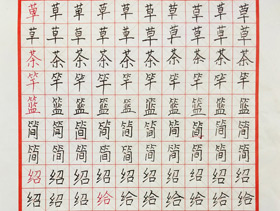 草草草草草草草草草
草草草草草草草草草
茶茶茶茶茶茶茶茶茶
笨笨笨笨笨笨笨笨笨
篮篮篮篮篮篮篮篮篮
简简简简简简简简简
简简简简简简简简简
绍绍绍绍绍绍绍绍绍
绍绍绍给给给给给给